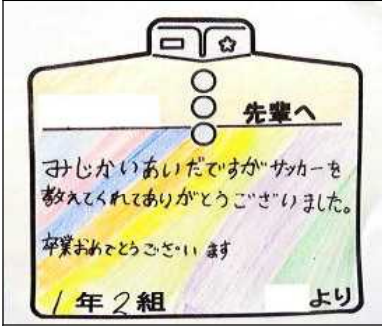 先輩へ
みじかいあいだですがサッカーを
教えてくれてありがとうございました。
卒業おめでとうございます
1年2組 より